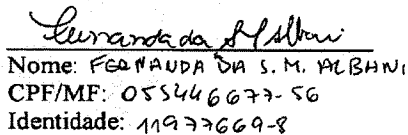 Fernanda da S M Albani
Nome: FERNANDA DA S. M. ALBANI
CPF/MF: 055446677-56
Identidade: 11977669-8